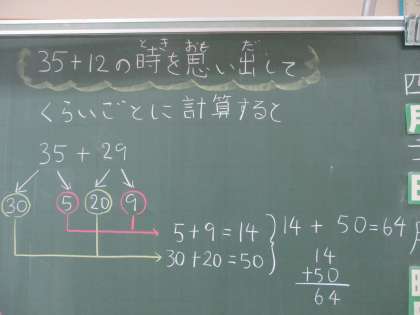 35+12の時を思い出して
とき おも だ
くらいごとに計算すると
35 + 29
30 5 20 9
5+9=14
30+20=50
14 + 50=64
14
+50
64
四
月